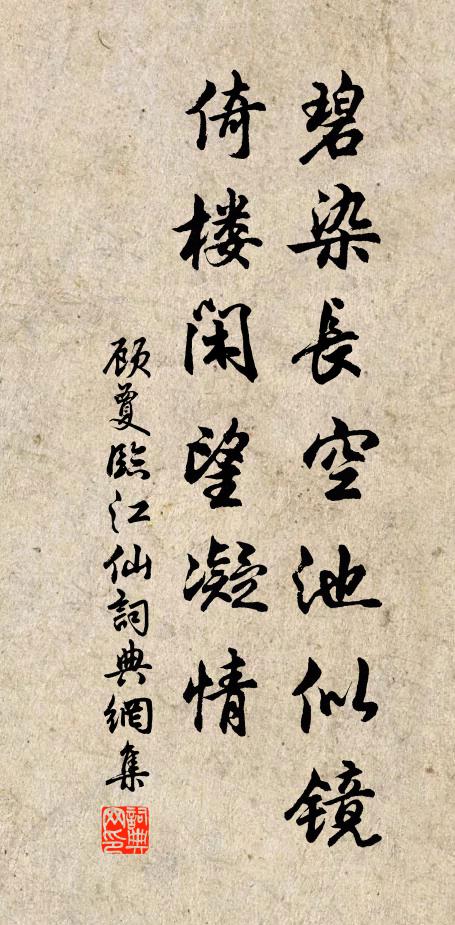 碧染長空池似镜
倚楼闲望凝情
顾夐臨江仙詞典網集
詞典网印